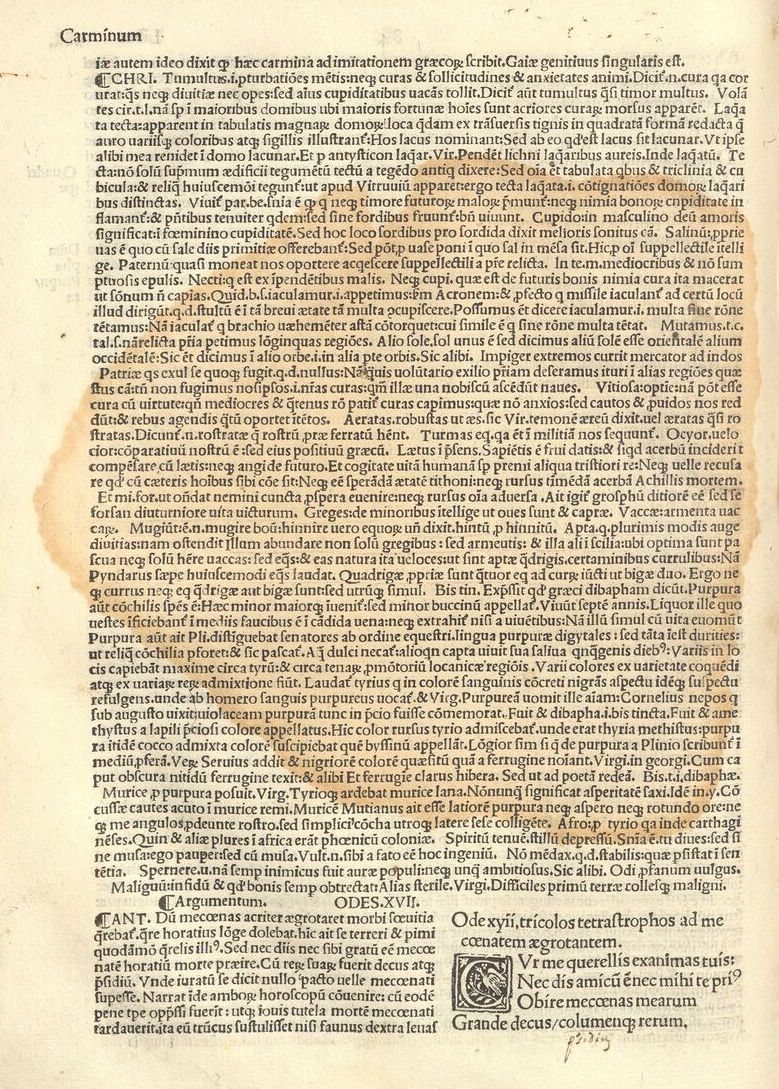 Carminum
iæ autem ideo dixit ꝙ hæc carmina ad imitationem græcoꝝ scribit. Gaiæ genitiuus singularis est.
¶CHRI. Tumultus.i.ꝑturbatiões mẽtis: neqꝫ curas & sollicitudines & anxietates animi. Dicit̃.n. cura qa cor
urat: qs neqꝫ diuitiæ nec opes: sed aĩus cupiditatibus uacãs tollit. Dicit̃ aũt tumultus q̃si timor multus. Volã
tes cir.t.l. nã sp ĩ maioribus domibus ubi maioris fortunæ hoĩes sunt acriores curaꝝ morsus apparẽt. Laq̃a
ta tecta: apparent in tabulatis magnaꝝ domoꝝ: loca q̃dam ex trãsuersis tignis in quadratã formã redacta q̃
auro uariisqꝫ coloribus atqꝫ sigillis illustrant̃: Hos lacus nominant: Sed ab eo qđ est lacus fit lacunar. Vt ipse
alibi mea renidet ĩ domo lacunar. Et ꝑ antysticon laqar. Vir. Pendẽt lichni laq̃aribus aureis. Inde laq̃atũ. Te
cta: nõ solũ sup̃mum ædificii tegumẽtũ tectũ a tegẽdo antiq dixere: Sed oĩa et tabulata qbus & triclinia & cu
bicula: & reliq̃ huiuscemõi tegunt̃: ut apud Vitruuiũ apparet: ergo tecta laq̃ata.i. cõtignatiões domoꝝ laq̃ari
bus distinctas. Viuit̃ par. be. snĩa ẽ ꝙ q neqꝫ timore futuroꝝ maloꝝ p̃munt̃: neqꝫ nimia bonoꝝ cupiditate in
flamant̃: & p̃ñtibus tenuiter qdem: sed sine sordibus fruunt̃: bñ uiuunt. Cupido: in masculino deũ amoris
significat: ĩ fœminino cupiditatẽ. Sed hoc loco sordibus pro sordida dixit melioris sonitus cã. Salinũ: ꝓprie
uas ẽ quo cũ sale diis primitiæ offerebant̃: Sed põt, ꝓ uase poni ĩ quo sal in mẽsa sit. Hic, ꝓ oĩ suppellectile itelli
ge. Paternũ: quasi moneat nos oportere acq̃escere suppellectili a pr̃e relicta. In te.m. mediocribus & nõ sum
ptuosis epulis. Necti: q est ex ĩpendẽtibus malis. Neqꝫ cupi. quæ est de futuris bonis nimia cura ita macerat
ut sõnum ñ capias. Quid.b.s. iaculamur.i. appetimus: ẽm Acronem: &, ꝓfecto q missile iaculant̃ ad certũ locũ
illud dirigũt. q.d. stultũ ẽ ĩ tã breui ætate tã multa ꝯcupiscere. Possumus et dicere iaculamur.i. multa sine rõne
tẽtamus: Nã iaculat̃ q brachio uæhemẽter astã cõtorquet: cui simile ẽ q sine rõne multa tẽtat. Mutamus.t.c.
tal.s. nã relicta pr̃ia petimus lõginquas regiões. Alio sole. sol unus ẽ sed dicimus aliũ solẽ esse orientalẽ alium
occidẽtalẽ: Sic et dicimus ĩ alio orbe.i. in alia pte orbis. Sic alibi. Impiger extremos currit mercator ad indos
Patriæ qs exul se quoqꝫ fugit. q.d. nullus: Nã quis uolũtario exilio pr̃iam deseramus ituri ĩ alias regiões quæ
stus cã: tñ non fugimus nosipsos.i. nr̃as curas: qm̃ illæ una nobiscũ ascẽdũt naues. Vitiosa: optie: nã põt esse
cura cũ uirtute: qñ mediocres & q̃tenus rõ patit̃ curas capimus: quæ nõ anxios: sed cautos &, ꝓuidos nos red
dũt: & rebus agendis q̃tũ oportet ĩtẽtos. Aeratas. robustas ut æs. sic Vir. temonẽ æreũ dixit. uel æratas q̃si ro
stratas. Dicunt̃.n. rostratæ q̃ rostrũ, præ ferratũ hẽnt. Turmas eq. qa ẽt ĩ militiã nos sequunt̃. Ocyor. uelo
cior: cõparatiuũ nostrũ ẽ: sed eius positiuũ græcũ. Lætus ĩ p̃sens. Sapiẽtis ẽ frui datis: & siqd acerbũ inciderit
compẽsare cũ lætis: neqꝫ angi de futuro. Et cogitate uitã humanã sp premi aliqua tristiori re: Neqꝫ uelle recusa
re qđ cũ cæteris hoĩbus sibi cõe sit: Neqꝫ eẽ sperãdã ætatẽ tithoni: neqꝫ rursus timẽdã acerbã Achillis mortem.
Et mi. for. ut oñdat nemini cuncta, ꝓspera euenire: neqꝫ rursus oĩa aduersa. Ait igit̃ grosphũ ditiorẽ eẽ sed se
forsan diuturniore uita uicturum. Greges: de minoribus itellige ut oues sunt & capræ. Vaccæ: armenta uac
caꝝ. Mugiũt: ẽ.n. mugire boũ: hinnire uero equoꝝ uñ dixit. hintũ, ꝓ hinnitũ. Apta. q. plurimis modis auge
diuitias: nam ostendit Illum abundare non solũ gregibus: sed armeutis: & illa alií ĩ scilia: ubi optima sunt pa
scua neqꝫ solũ hẽre uaccas: sed eq̃s: & eas natura ita ueloces: ut sint aptæ q̃drigis. certaminibus currulibus: Nã
Pyndarus sæpe huiuscemodi eq̃s laudat. Quadrigæ, ꝓpriæ sunt q̃tuor eq ad curꝝ iũcti ut bigæ duo. Ergo ne
qꝫ currus neqꝫ eq q̃drigæ aut bigæ sunt: sed utrũqꝫ simul. Bis tin. Exp̃ssit qđ græci dibapham dicũt. Purpura
aũt cõchilis spẽs ẽ: Hæc minor maiorqꝫ ĩuenit̃: sed minor buccinũ appellat̃. Viuũt septẽ annis. Liquor ille quo
uestes ĩficiebant̃ ĩ mediis faucibus ẽ ĩ cãdida uena: neqꝫ extrahit̃ nisi a uiuẽtibus: Nã illũ simul cũ uita euomũt
Purpura aũt ait Pli. distiguebat senatores ab ordine equestri. lingua purpuræ digytales: sed tãta iest durities:
ut reliq̃ cõchilia ꝑforet: & sic pascat̃. Aq̃ dulci necat̃: alioqn capta uiuit sua saliua qnq̃genis diebꝰ: Variis in lo
cis capiebãt maxime circa tyrũ: & circa tenaꝝ, ꝓmõtoriũ locanicæ regiõis. Varii colores ex uarietate coquẽdi
atqꝫ ex uariaꝝ reꝝ admixtione fiũt. Laudat̃ tyrius q in colorẽ sanguinis cõcreti nigrãs aspectu idẽqꝫ suspectu
refulgens. unde ab homero sanguis purpureus uocat̃. & Virg. Purpureã uomit ille aĩam: Cornelius nepos q
sub augusto uixit: uiolaceam purpurã tunc in p̃cio fuisse cõmemorat. Fuit & dibapha.i. bis tincta. Fuit & ame
thystus a lapili p̃ciosi colore appellatus. Hic color rursus tyrio admiscebat̃. unde erat thyria methistus: purpu
ra itidẽ cocco admixta colorẽ suscipiebat quẽ byssinũ appellãt. Lõgior sim si q̃ de purpura a Plinio scribunt̃ ĩ
mediũ, ꝓferã. Veꝝ Seruius addit & nigriorẽ colorẽ quæsitũ quã a ferrugine noĩant. Virgi. in georgi. Cum ca
put obscura nitidũ ferrugine texit: & alibi Et ferrugĩe clarus hibera. Sed ut ad poetã redeã. Bis.t.i. dibaphæ.
Murice, ꝓ purpura posuit. Virg. Tyrioqꝫ ardebat murice lana. Nõnunq̃ significat asperitatẽ saxi. Idẽ in.y. Cõ
cussæ cautes acuto ĩ murice remi. Muricẽ Mutianus ait esse latiorẽ purpura neqꝫ aspero neqꝫ rotundo ore: ne
qꝫ me angulos, ꝓdeunte rostro. sed simplicí cõcha utroqꝫ latere sese colligẽte. Afro: ꝓ tyrio qa inde carthagi
nẽses. Quin & aliæ plures ĩ africa erãt phœnicũ coloniæ. Spiritũ tenuẽ. stillũ depressũ. Snĩa ẽ. tu diues: sed si
ne musa: ego pauper: sed cũ musa. Vult.n. sibi a fato eẽ hoc ingeniũ. Nõ mẽdax. q.d. stabilis: quæ p̃sistat ĩ sen
tẽtia. Spernere. u. nã semp inimicus fuit auræ populi: neqꝫ unq̃ ambitiosus. Sic alibi. Odi, ꝓfanum uulgus.
Malignũ: infidũ & qđ bonis semp obtrectat: Alias sterile. Virgi. Difficiles primũ terræ collesqꝫ maligni.
¶Argumentum. ODES.XVII.
¶ANT. Dũ mecœnas acriter ægrotaret morbi sœuitia
q̃rebat̃. q̃re horatius lõge dolebat. hic ait se terreri & pimi
quodãmõ q̃relis illiꝰ. Sed nec diis nec sibi gratũ eẽ mecœ
natẽ horatiũ morte præire. Cũ reꝝ suaꝝ fuerit decus atqꝫ
p̃sidiũ. Vnde iuratũ se dicit nullo pacto uelle mecœnati
supesse. Narrat ĩde amboꝝ horoscopũ cõuenire: cũ eodẽ
pene tpe opp̃ssi fuerit: utqꝫ iouis tutela mortẽ mecœnati
tardauerit. ita eũ trũcus sustulisset nisi faunus dextra leuas
Ode xyíí, trícolos tetrastrophos ad me
cœnatem ægrotantem.
CVr me querellis exanimas tuis:
Nec dis amicũ ẽ nec mihi te priꝰ
Obire mecœnas mearum
Grande decus/columenqꝫ rerum,